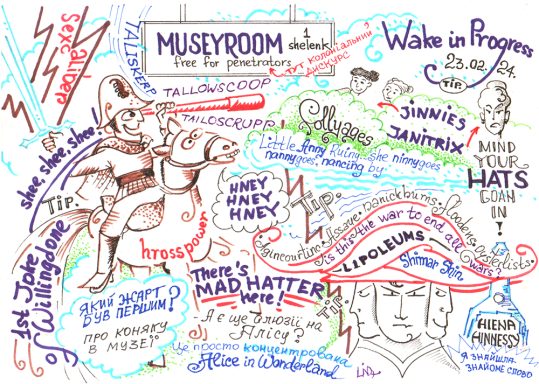 Sexcaliber
TALISKERS
MUSEYROOM
1 shelenk
free for penetrators
ТУТ КОЛОНІАЛЬНИЙ ДИСКУРС
Wake in Progress
23.02.24.
TIP.
TALLOWSCOOP
TAILOSCRUPP
Sollyages
JINNIES
JANITRIX
MIND
YOUR
HATS
GOAN
IN!
shee, shee, shee!
Little Anny Ruiny...she ninnygoes
nannygoes, nancing by
TIP.
HNEY
HNEY
HNEY
TIP.
hrosspower
1st Joke
of Willingdone
is this the war to end all wars?
LIPOLEUMS
Shimar Shin
There's
MAD HATTER
here!
TIP.
ЯКИЙ ЖАРТ
БУВ ПЕРШИМ?
ПРО КОНЯКУ
В МУЗЕЇ
А є ще алюзії на
Алісу?
Це просто концентрована
Alice in Wonderland
LINA
HIENA
HINNESSY
Я ЗНАЙШЛА
ЗНАЙОМЕ СЛОВО